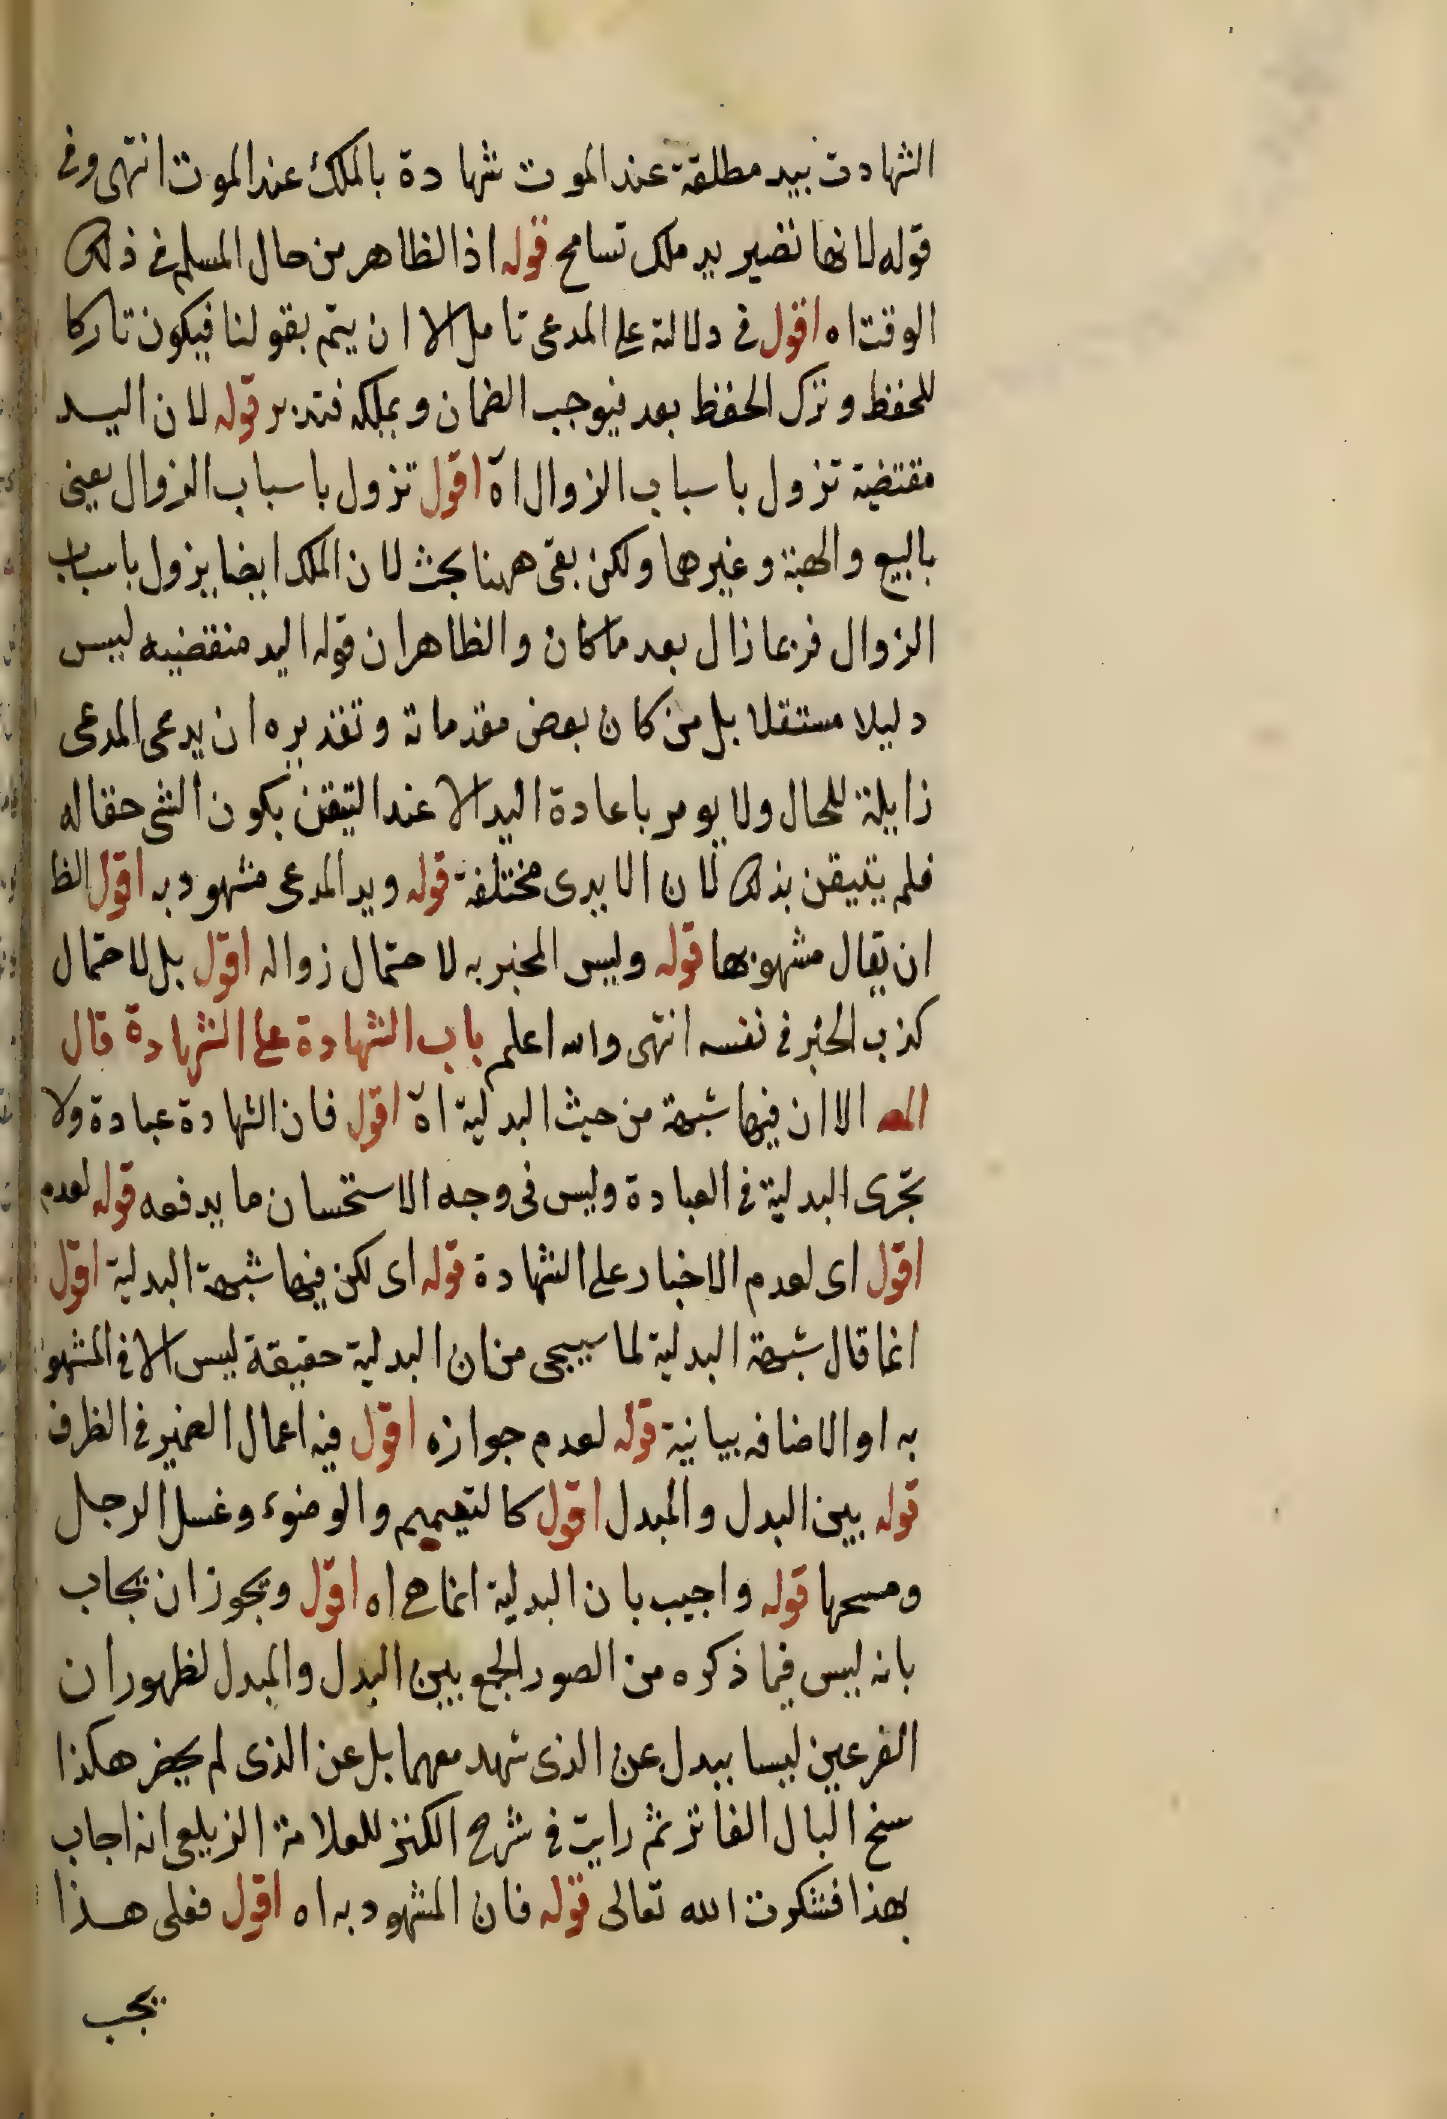 الشهادت بيد مطلقة عند الموت شهادة بالملك عند الموت انتهى وفى
قوله لانها تضير يد ملك تسامح قوله اذ الظاهر من حال المسلم فى ذلك
الوقت اه اقول فى دلالته على المدعى تامل الا ان يتم بقولنا فيكون تاركا
للحفظ وترك الحفظ بعد فيوجب الضمان ويملكه فتدبر قوله لان اليد
مقتضية تزول باسباب الزوال اه اقول تزول باسباب الزوال يعنى
بالبيع والهبة وغيرهما ولكن بقى ههنا بحث لان الملك ايضا يزول باسباب
الزوال فربما زال بعد ما كان والظاهر ان قوله اليد منقضيه ليس
دليلا مستقلا بل من كان بعض مقدماته وتقديره ان يدعى المدعى
زايلة للحال ولا يومر باعادة اليد الا عند التيقن بكون الشى حقا له
فلم يتيقن بذلك لان الايدى مختلفة قوله ويد المدعى مشهود به اقول الظ
ان يقال مشهود بها قوله وليس المخبر به لاحتمال زواله اقول بل لاحتمال
كذب الخبر فى نفسه انتهى والله اعلم باب الشهادة على الشهادة قال
المصـ الا ان فيها شبهة من حيث البدلية اه اقول فان الشهادة عبادة ولا
تجرى البدلية فى العبادة وليس فى وجه الاستحسان ما يدفعه قوله لعدم
اقول اى لعدم الاخبار على الشهادة قوله اى لكن فيها شبهة البدلية اقول
انما قال شبهة البدلية لما سيجى من ان البدلية حقيقة ليس الا فى المشهو
به او الاضافه بيانية قوله لعدم جوازه اقول فيه اعمال الضمير فى الظرف
قوله بين البدل والمبدل اقول كالتيميم والوضوء وغسل الرجل
ومسحها قوله واجيب بان البدلية انما هى اه اقول ويجوز ان يجاب
بانه ليس فيما ذكره من الصور الجمع بين البدل والمبدل لظهور ان
الفرعين ليسا ببدل عن الذى شهد معهما بل عن الذى لم يحضر هكذا
سنح البال الفاتر ثم رايت فى شرح الكنز للعلامة الزيلعى انه اجاب
بهذا فشكرت الله تعالى قوله فان المشهود به اه اقول فعلى هذا
يجب